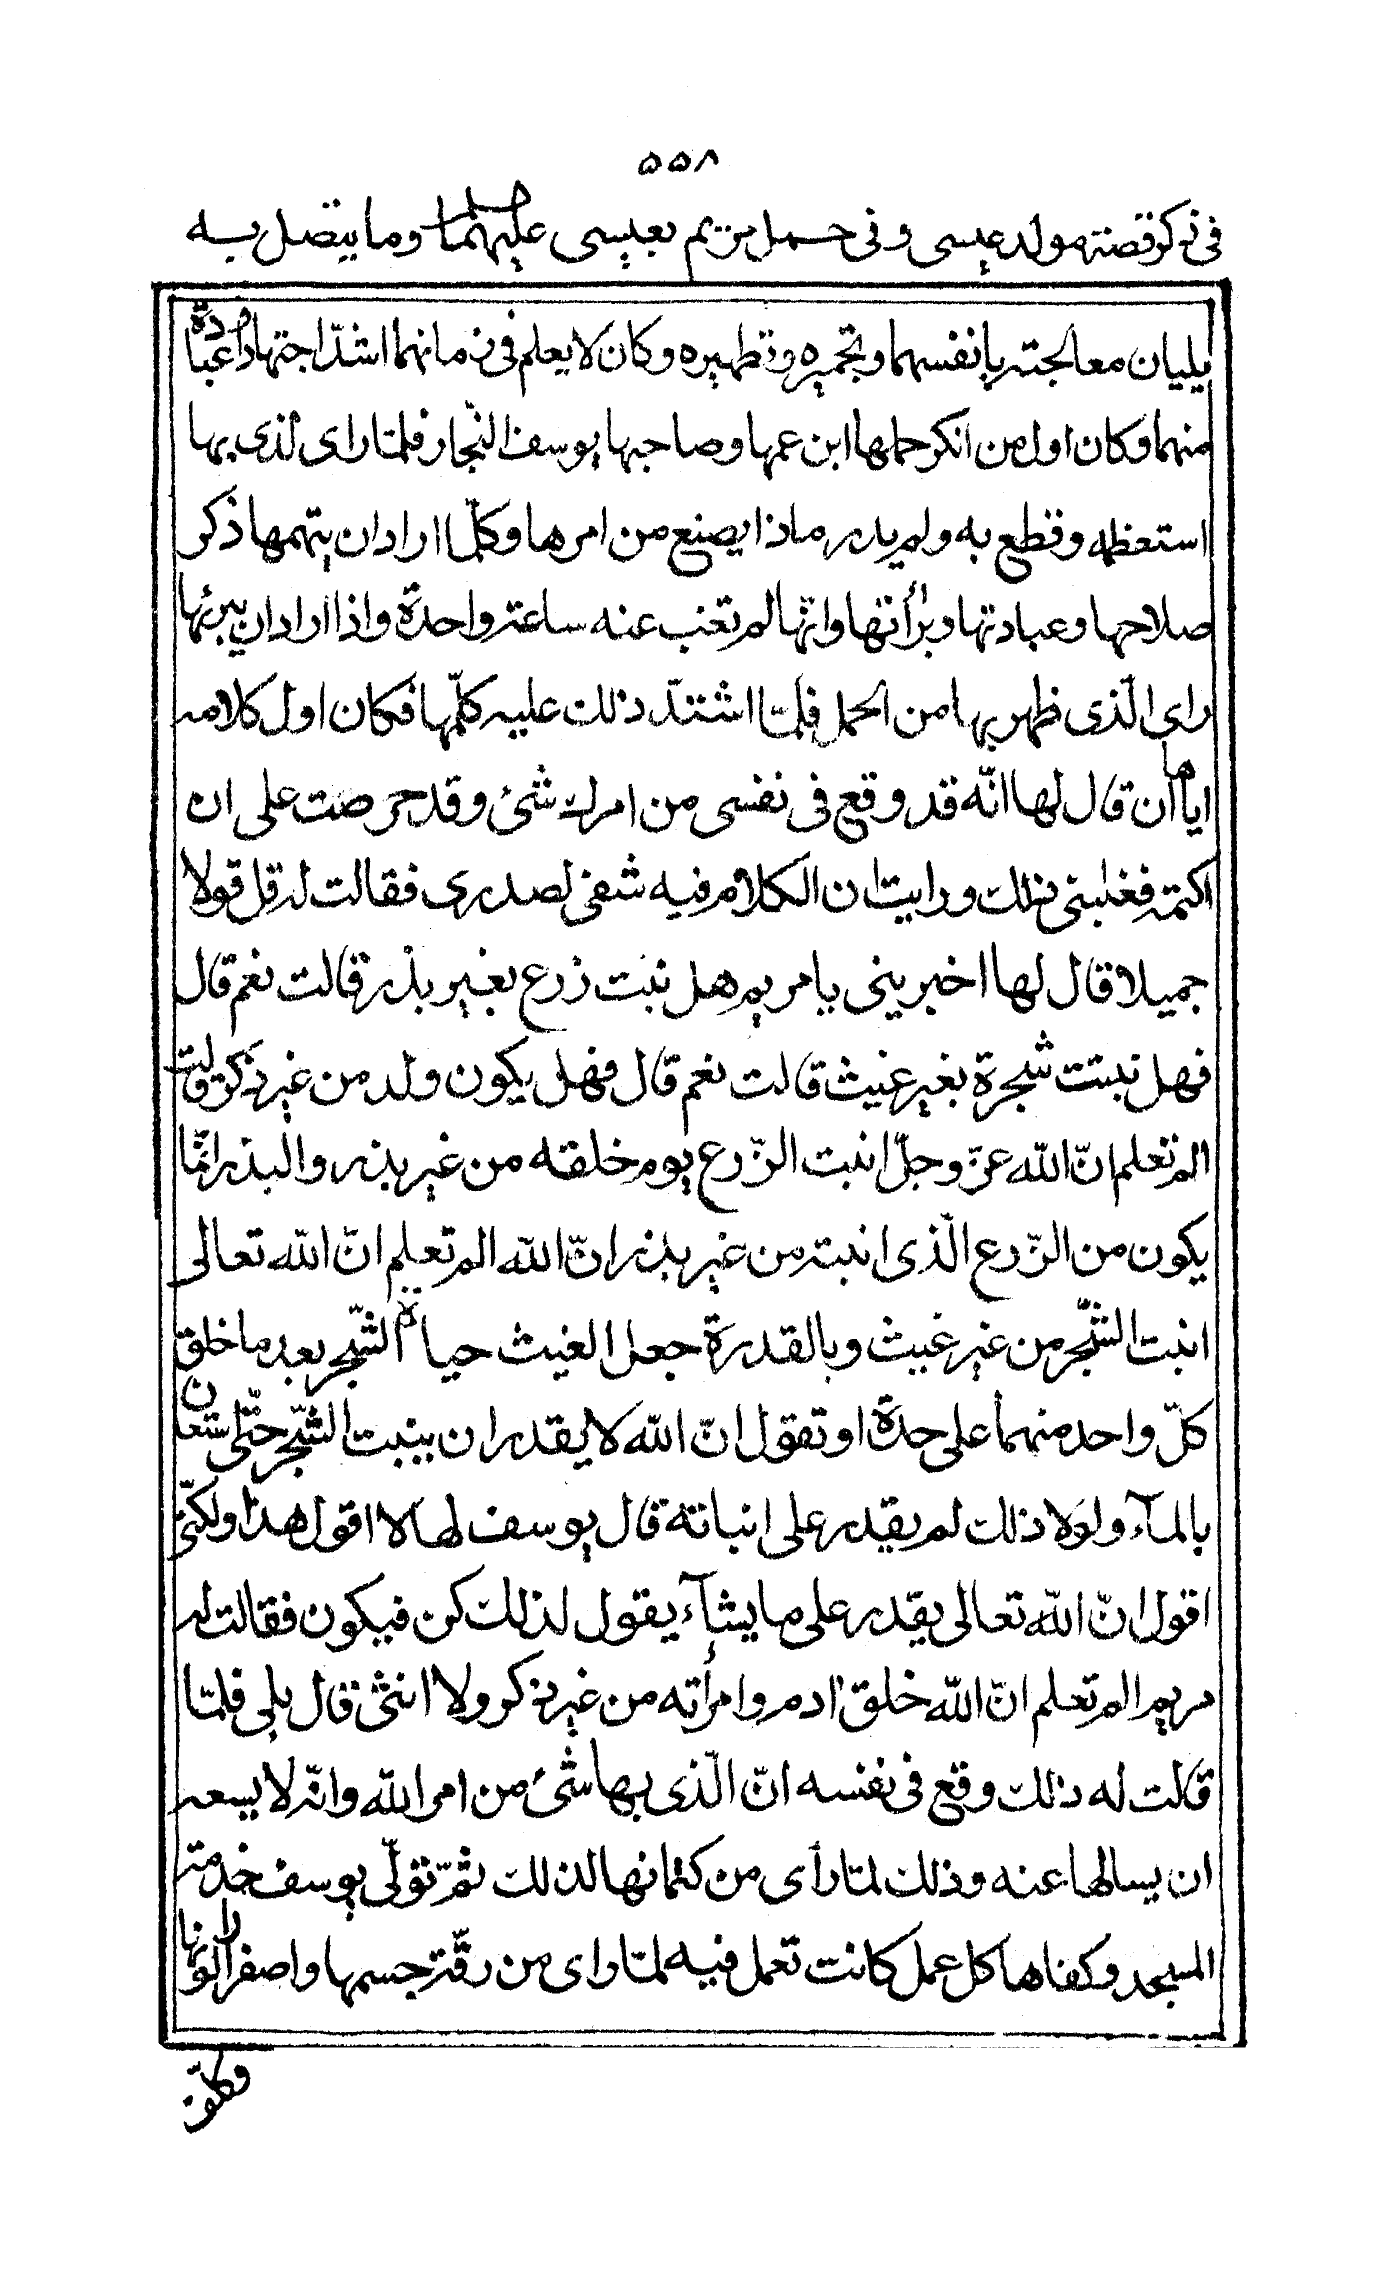 ۵۵۸
فی ذکر قصته مولد عیسی و فی حمل مریم بعیسی علیهما و ما یتصل به
یلیان معالجته بانفسهما و تجمیره و تطهیره و کان لا یعلم فی زمانهما اشدّ اجتهادا و عبادة
منهما و کان اول من انکر حملها ابن عمها و صاحبها یوسف النّجار فلمّا رای لذی بها
استعظمه و قطع به و لم یدر ماذا یصنع من امرها و کلّما اراد ان یتهمها ذکر
صلاحها و عبادتها و برأتها و انّها لم تغب عنه ساعتر واحدة و اذا اراد ان یبرئها
رای الّذی ظهر بها من الحمل فلمّا اشتدّ ذلک علیه کلّمها فکان اول کلامه
ایاها ان قال لها انّه قد وقع فی نفسی من امرک شئ و قد حرصت علی ان
اکتمه فغلبنی ذلک و رایت ان الکلام فیه شفی لصدری فقالت له قل قولا
جمیلا قال لها اخبرینی یا مریم هل نبت زرع بغیر بذر قالت نعم قال
فهل نبتت شجرة بغیر غیث قالت نعم قال فهل یکون ولد من غیر ذکر قالت
الم تعلم انّ الله عزّ و جلّ انبت الزّرع یوم خلقه من غیر بذر و البذر انّما
یکون من الزّرع الّذی انبته من غیر بذر انّ الله الم تعلم انّ الله تعالی
انبت الشّجر من غیر غیث و بالقدرة جعل الغیث حیاة الشّجر بعد ما خلق
کلّ واحد منهما علی حدة او تقول انّ الله لا یقدر ان ینبت الشّجر حتّی استعان
بالمآء و لولا ذلک لم یقدر علی انباته قال یوسف لها لا اقول هذا و لکنّی
اقول انّ الله تعالی یقدر علی ما یشآء یقول لذلک کن فیکون فقالت له
مریم الم تعلم انّ الله خلق ادم و امرأته من غیر ذکر و لا انثی قال بلی فلمّا
قالت له ذلک وقع فی نفسه انّ الّذی بها شئ من امر الله و انّه لا یسعه
ان یسالها عنه و ذلک لمّا رأی من کتمانها لذلک ثمّ تولّی یوسف خدمته
المسجد و کفاها کل عمل کانت تعمل فیه لمّا رای من رقّة جسمها و اصفرار لونها
و کلف